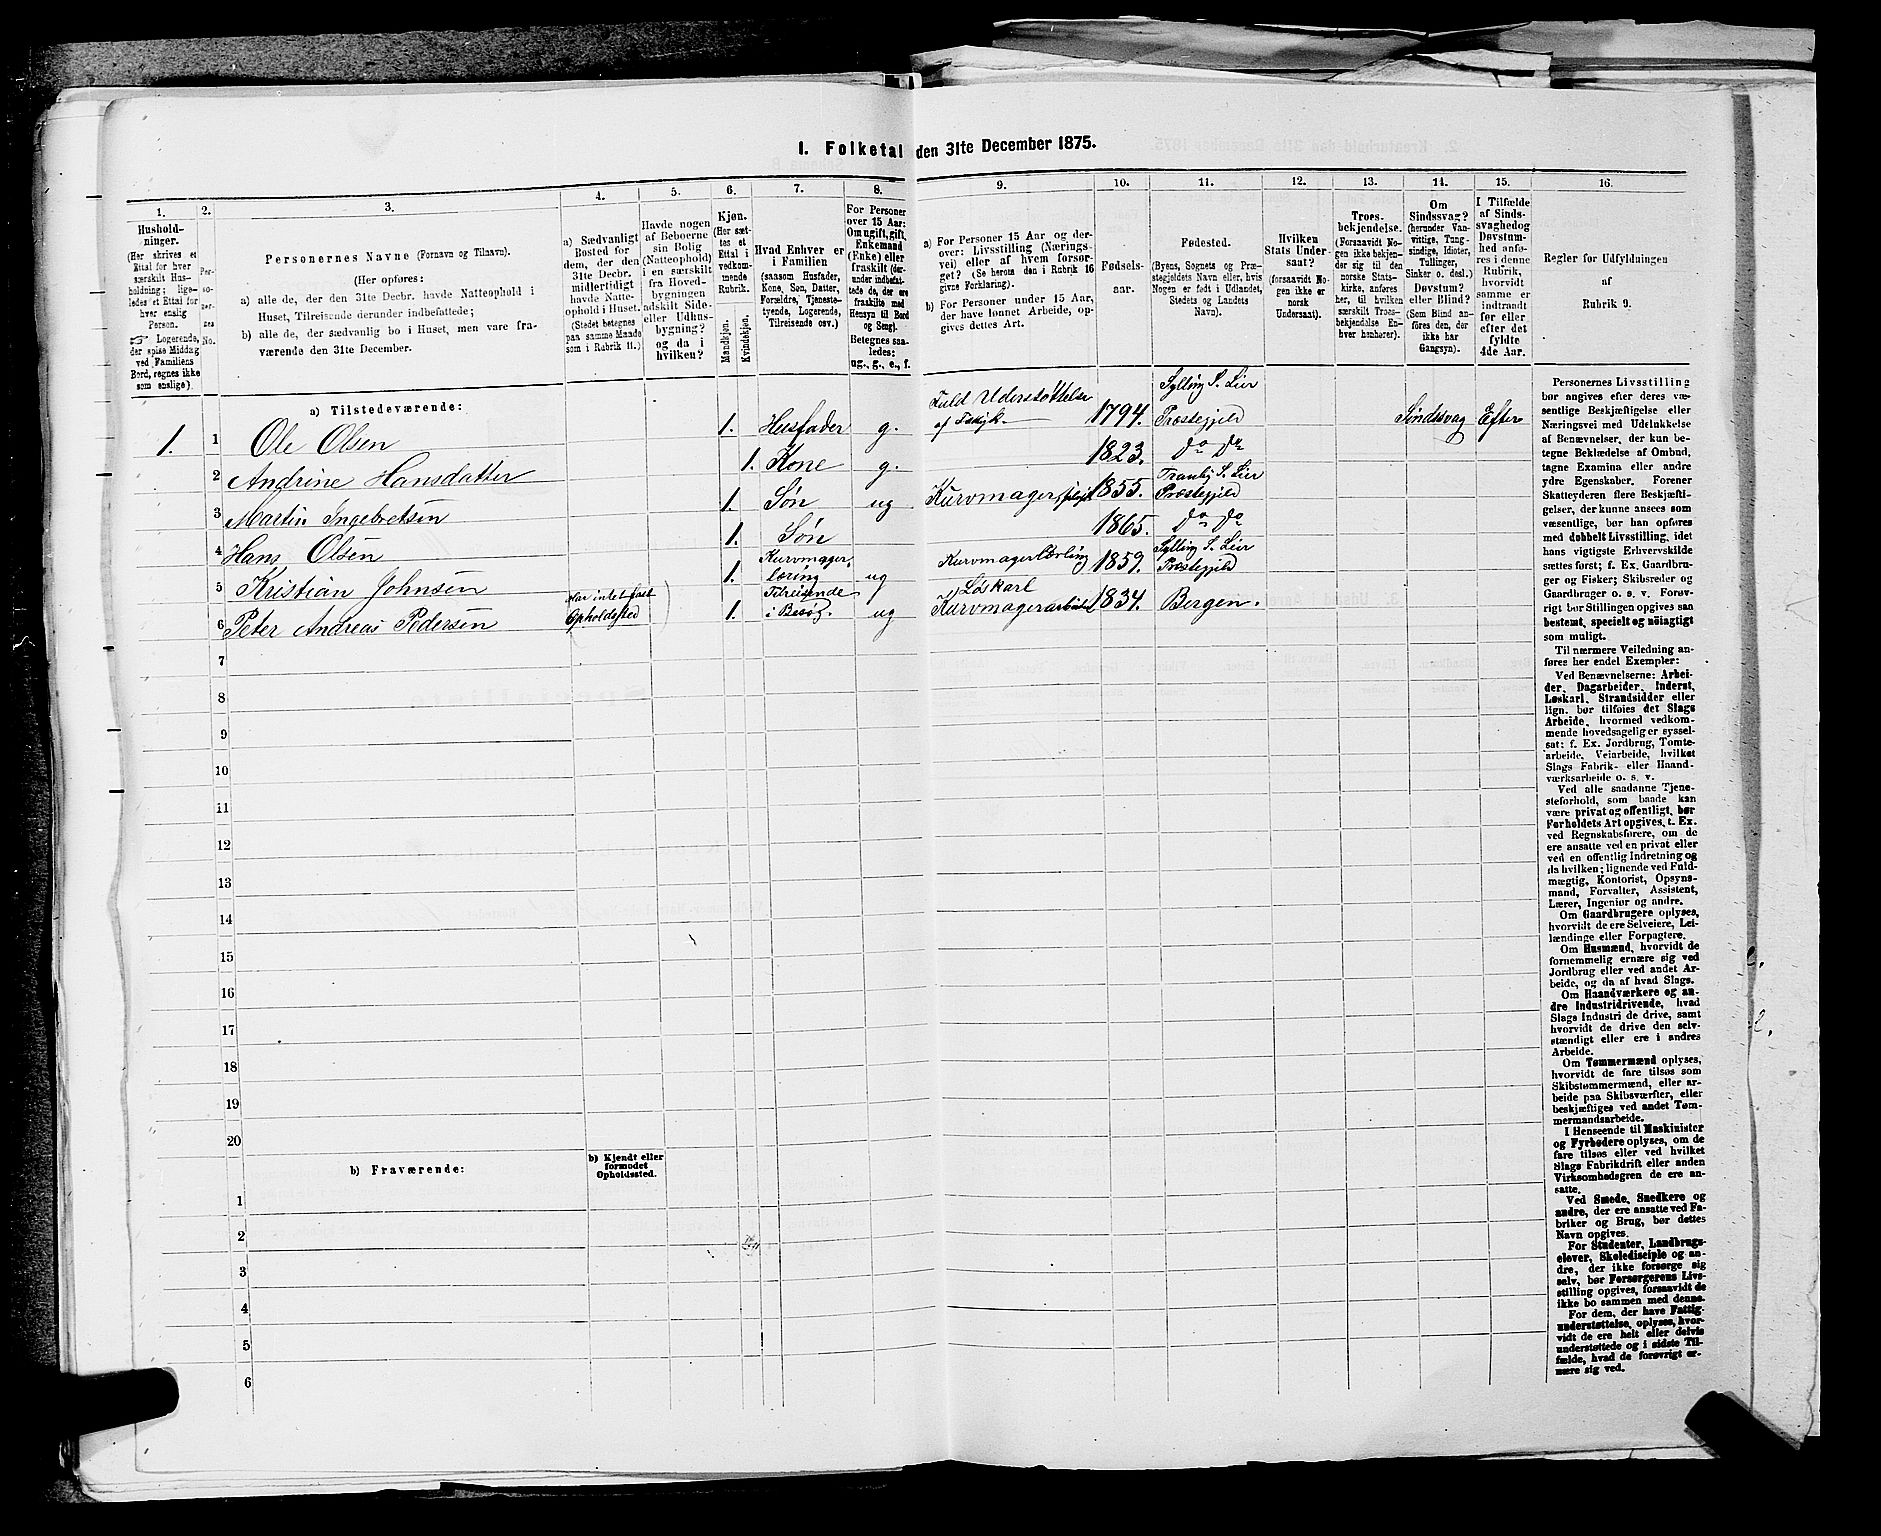 1. Folketal den 31te December 1875.
1.
2.
3.
4.
5.
6.
7.
8.
9.
10.
11.
12.
13.
14.
15.
16.
Hushold-
ninger.
(Her skrives et
Ettal for hver
særskilt Hus-
holdning; lige-
ledes et Ettal for
hver enslig
Person.
☞ Logerende,
der spise Middag
ved Familiens
Bord, regnes ikke
som enslige).
Per-
so-
ner-
nes
No.
Personernes Navne (Fornavn og Tilnavn).
(Her opføres:
a) alle de, der den 31te Decbr. havde Natteophold i
Huset, Tilreisende derunder indbefattede;
b) alle de, der sædvanlig bo i Huset, men vare fra-
værende den 31te December.
a) Sædvanligt
Bosted for
dem, der den
31te Decbr.
midlertidigt
havde Natte-
ophold i Huset.
(Stedet betegnes
paa samme Maade
som i Rubrik 11.)
Havde nogen
af Beboerne
sin Bolig
(Natteophold)
i en særskilt
fra Hoved-
bygningen
adskilt Side-
eller Udhus-
bygning?
og da i
hvilken?
Kjøn.
(Her sæt-
tes et
Ettal i
vedkom-
mende
Rubrik.
Mandkjøn.
Kvindekjøn.
Hvad Enhver er
i Familien
(saasom Husfader,
Kone, Søn, Datter,
Forældre, Tjeneste-
tyende, Logerende,
Tilreisende osv.)
For Personer
over 15 Aar:
Om ugift, gift,
Enkemand
(Enke) eller
fraskilt (der-
under indbefat-
tede de, der ere
fraskilte med
Hensyn til Bord
og Seng).
Betegnes saa-
ledes:
ug., g., e., f.
a) For Personer 15 Aar og der-
over: Livsstilling (Nærings-
vei) eller af hvem forsør-
get? (Se herom den i Rubrik 16
givne Forklaring).
b) For Personer under 15 Aar,
der have lønnet Arbeide, op-
gives dettes Art.
Fødsels-
aar.
Fødested.
(Byens, Sognets og Præ-
stegjeldets Navn eller, hvis
Nogen er født i Udlandet,
Stedets og Landets
Navn).
Hvilken
Stats Under-
saat?
(forsaavidt No-
gen ikke er
norsk
Undersaat).
Troes-
bekjendelse.
(Forsaavidt No-
gen ikke bekjen-
der sig til den
norske Stats-
kirke, anføres
her, til hvilken
særskilt Troes-
bekjendelse En-
hver henhører).
Om
Sindssvag?
(herunder Van-
vittige, Tung-
sindige, Idioter,
Tullinger,
Sinker o. desl.)
Døvstum?
eller Blind?
(Som Blind an-
føres den, der
ikke har
Gangsyn).
I Tilfælde
af Sinds-
svaghed og
Døvstum-
hed anfø-
res i denne
Rubrik,
hvorvidt
samme er
indtraadt
før eller
efter det
fyldte
4de Aar.
Regler for Udfyldningen
af
Rubrik 9.
a) Tilstedeværende:
1. 1 Ole Olsen 1. Husfader g. Fuld Understøttelse af 1794. Sylling S. Lier Præstegjeld Sindssvag Efter
2 Andrine Hansdatter 1. Kone g. 1823. Do Do
3 Martin Ingebretsen 1. Søn ug Kurvmager 1855. Tranby S. Lier Præstegjeld
4 Hans Olsen 1. Søn 1865. Do Do
5 Kristian Johnsen 1. Kurvmager- læring ug Kurvmagerlærling 1859. Sylling S. Lier Præstegjeld
6 Peter Andreas Pedersen Har intet fast Opholdssted 1. Tilreisende i Besøg. ug Løskarl Kurvmagerarbeid 1834. Bergen.
7
8
9
10
11
12
13
14
15
16
17
18
19
20
b) Fraværende:
b) Kjendt eller
formodet
Opholdssted.
1
2
3
4
5
6
Personernes Livsstilling
bør angives efter deres væ-
sentlige Beskjæftigelse eller
Næringsvei med Udelukkelse
af Benævnelser, der kun be-
tegne Beklædelse af Ombud,
tagne Examina eller andre
ydre Egenskaber. Forener
Skatteyderen flere Beskjæfti-
gelser, der kunne ansees som
væsentlige, bør han opføres
med dobbelt Livsstilling, idet
hans vigtigste Erhvervskilde
sættes først; f. Ex. Gaardbru-
ger og Fisker; Skibsreder og
Gaardbruger o. s. v. Forøv-
rigt bør Stillingen opgives saa
bestemt, specielt og nøiagtigt
som muligt.
Til nærmere Veiledning an-
føres her endel Exempler:
Ved Benævnelserne: Arbei-
der, Dagarbeider, Inderst,
Løskarl, Strandsidder eller
lign. bør tilføies det Slags
Arbeide, hvormed vedkom-
mende hovedsagelig er syssel-
sat: f. Ex. Jordbrug, Tomte-
arbeide, Veiarbeide, hvilket
Slags Fabrik- eller Haand-
værksarbeide o. s. v.
Ved alle saadanne Tjene-
steforhold, som baade kan
være privat og offentligt, bør
Forholdets Art opgives, t. Ex.
ved Regnskabsførere, om de
ere ansatte ved en privat eller
ved en offentlig Indretning og
da hvilken; lignende ved Fuld-
mægtig, Kontorist, Opsyns-
mand, Forvalter, Assistent,
Lærer, Ingeniør og andre.
Om Gaardbrugere oplyses,
hvorvidt de ere Selveiere, Lei-
lændinge eller Forpagtere.
Om Husmænd, hvorvidt de
fornemmelig ernære sig ved
Jordbrug eller ved andet Ar-
beide, og da af hvad Slags.
Om Haandværkere og an-
dre Industridrivende, hvad
Slags Industri de drive, samt
hvorvidt de drive den selv-
stændigt eller ere i andres
Arbeide.
Om Tømmermænd oplyses,
hvorvidt de fare tilsøs som
Skibstømmermænd, eller ar-
beide paa Skibsværfter, eller
beskjæftiges ved andet Tøm-
mermandsarbeide.
I Henseende til Maskinister
og Fyrbødere oplyses, om de
fare tilsøs eller ved hvilket
Slags Fabrikdrift eller anden
Virksomhedsgren de ere an-
satte.
Ved Smede, Snedkere og
andre, der ere ansatte ved Fa-
briker og Brug, bør dettes
Navn opgives.
For Studenter, Landbrugs-
elever, Skoledisciple og an-
dre, der ikke forsørge sig
selv, bør Forsørgerens Livs-
stilling opgives, forsaavidt de
ikke bo sammen med denne.
For dem, der have Fattig-
understøttelse, oplyses, hvor-
vidt de ere helt eller delvis
understøttede og i sidste Til-
fælde, hvad de forøvrigt er-
nære sig ved.